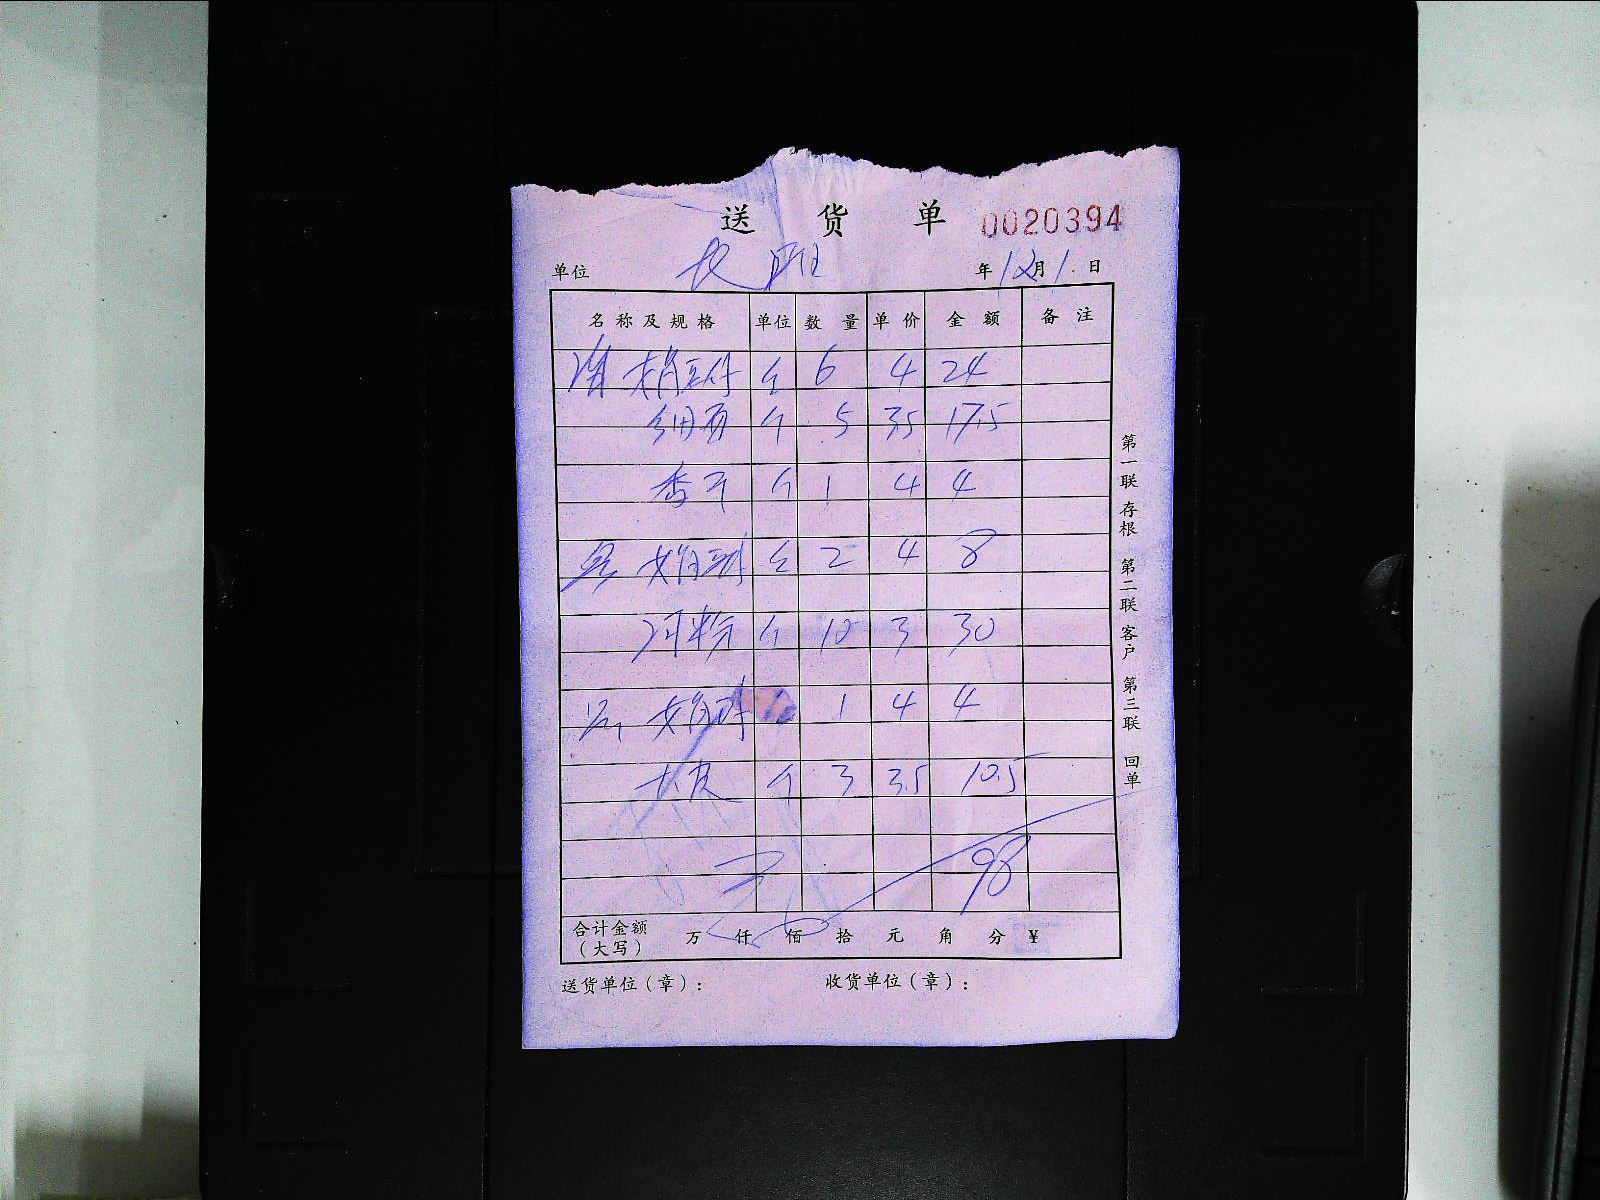 送 货 单 0020394
单位 年 12月 1 日
名称及规格 单位 数量 单价 金额 备注
个 6 4 24
细面 个 5 3.5 17.5
香干 个 1 4 4
个 2 4 8
河粉 个 10 3 30
1 4 4
大皮 个 3 3.5 10.5
98
合计金额
（大写） 万 仟 佰 拾 元 角 分 ￥
送货单位（章）： 收货单位（章）：
第一联 存根 第二联 客户 第三联 回单